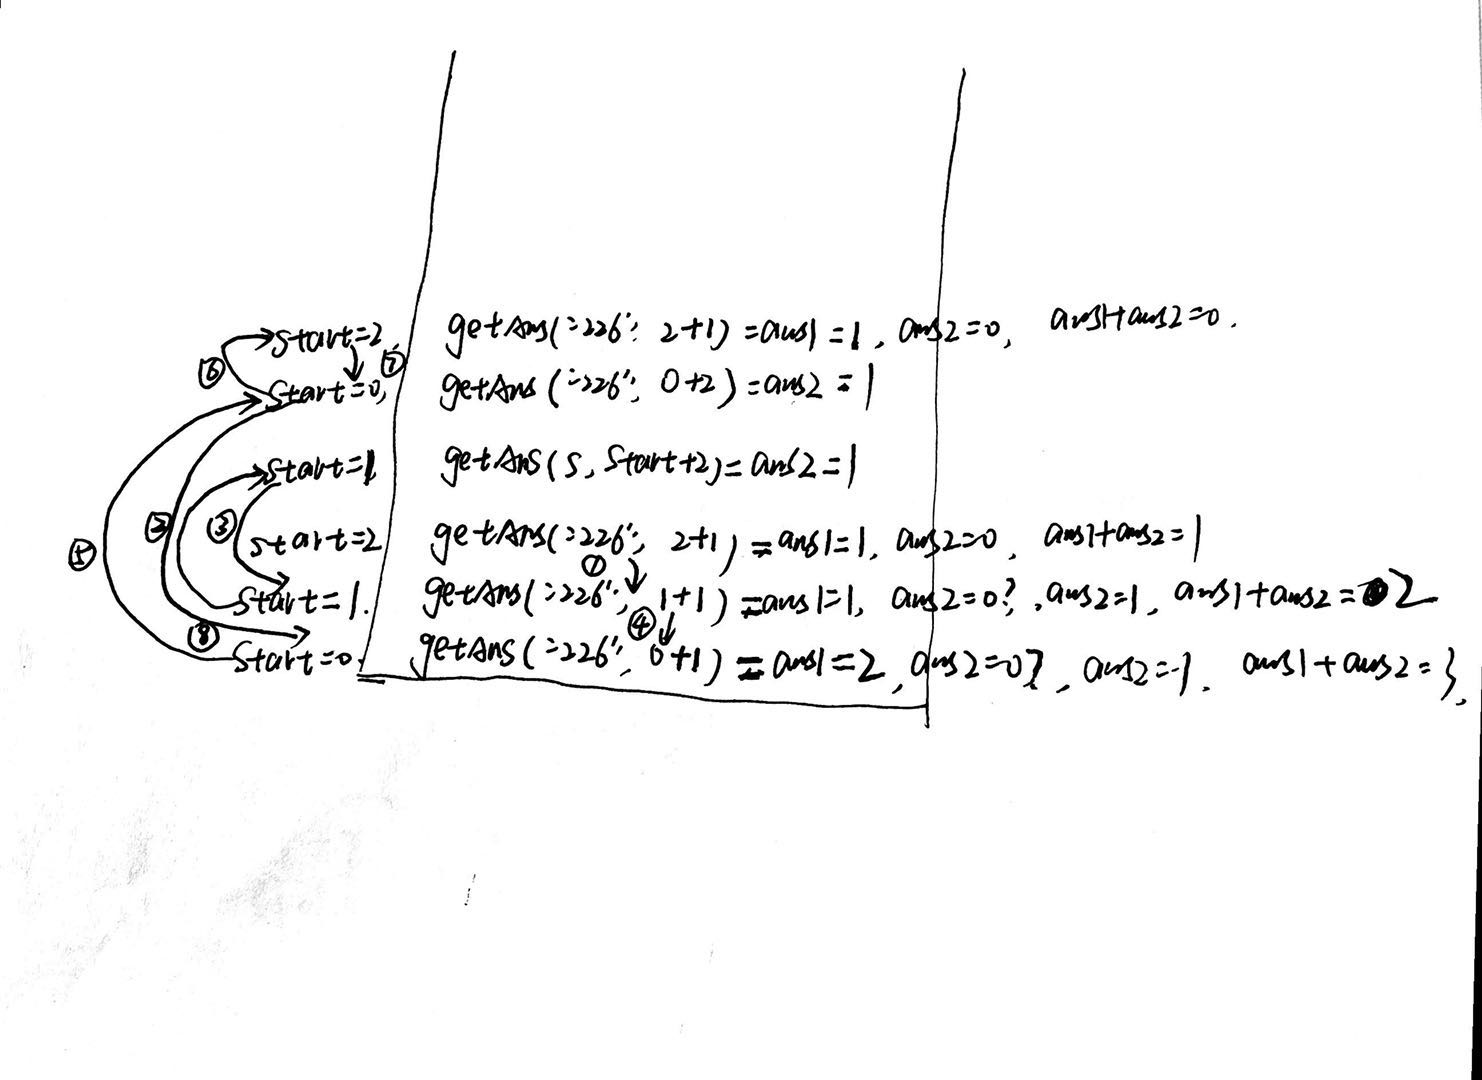 start=2, getAns("226", 2+1) =ans1=1, ans2=0, ans1+ans2=0.
⑥ ⑦
start=0, getAns("226", 0+2)=ans2=1
start=1 getAns(s, start+2)=ans2=1
⑤ ② ③ start=2 getAns("226", 2+1)=ans1=1, ans2=0, ans1+ans2=1
①
start=1. getAns("226", 1+1)=ans1=1, ans2=0?, ans2=1, ans1+ans2=2
⑧ ④
start=0. getAns("226", 0+1)=ans1=2, ans2=0?, ans2=1. ans1+ans2=3,